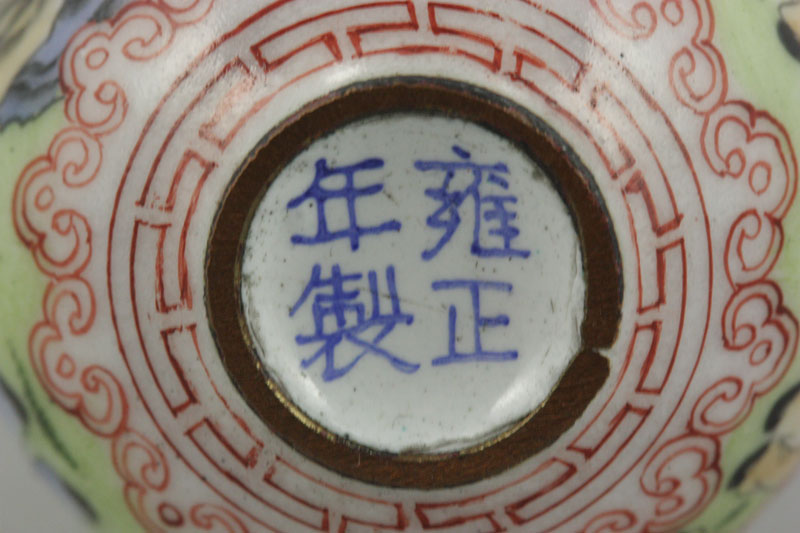 雍正
年製